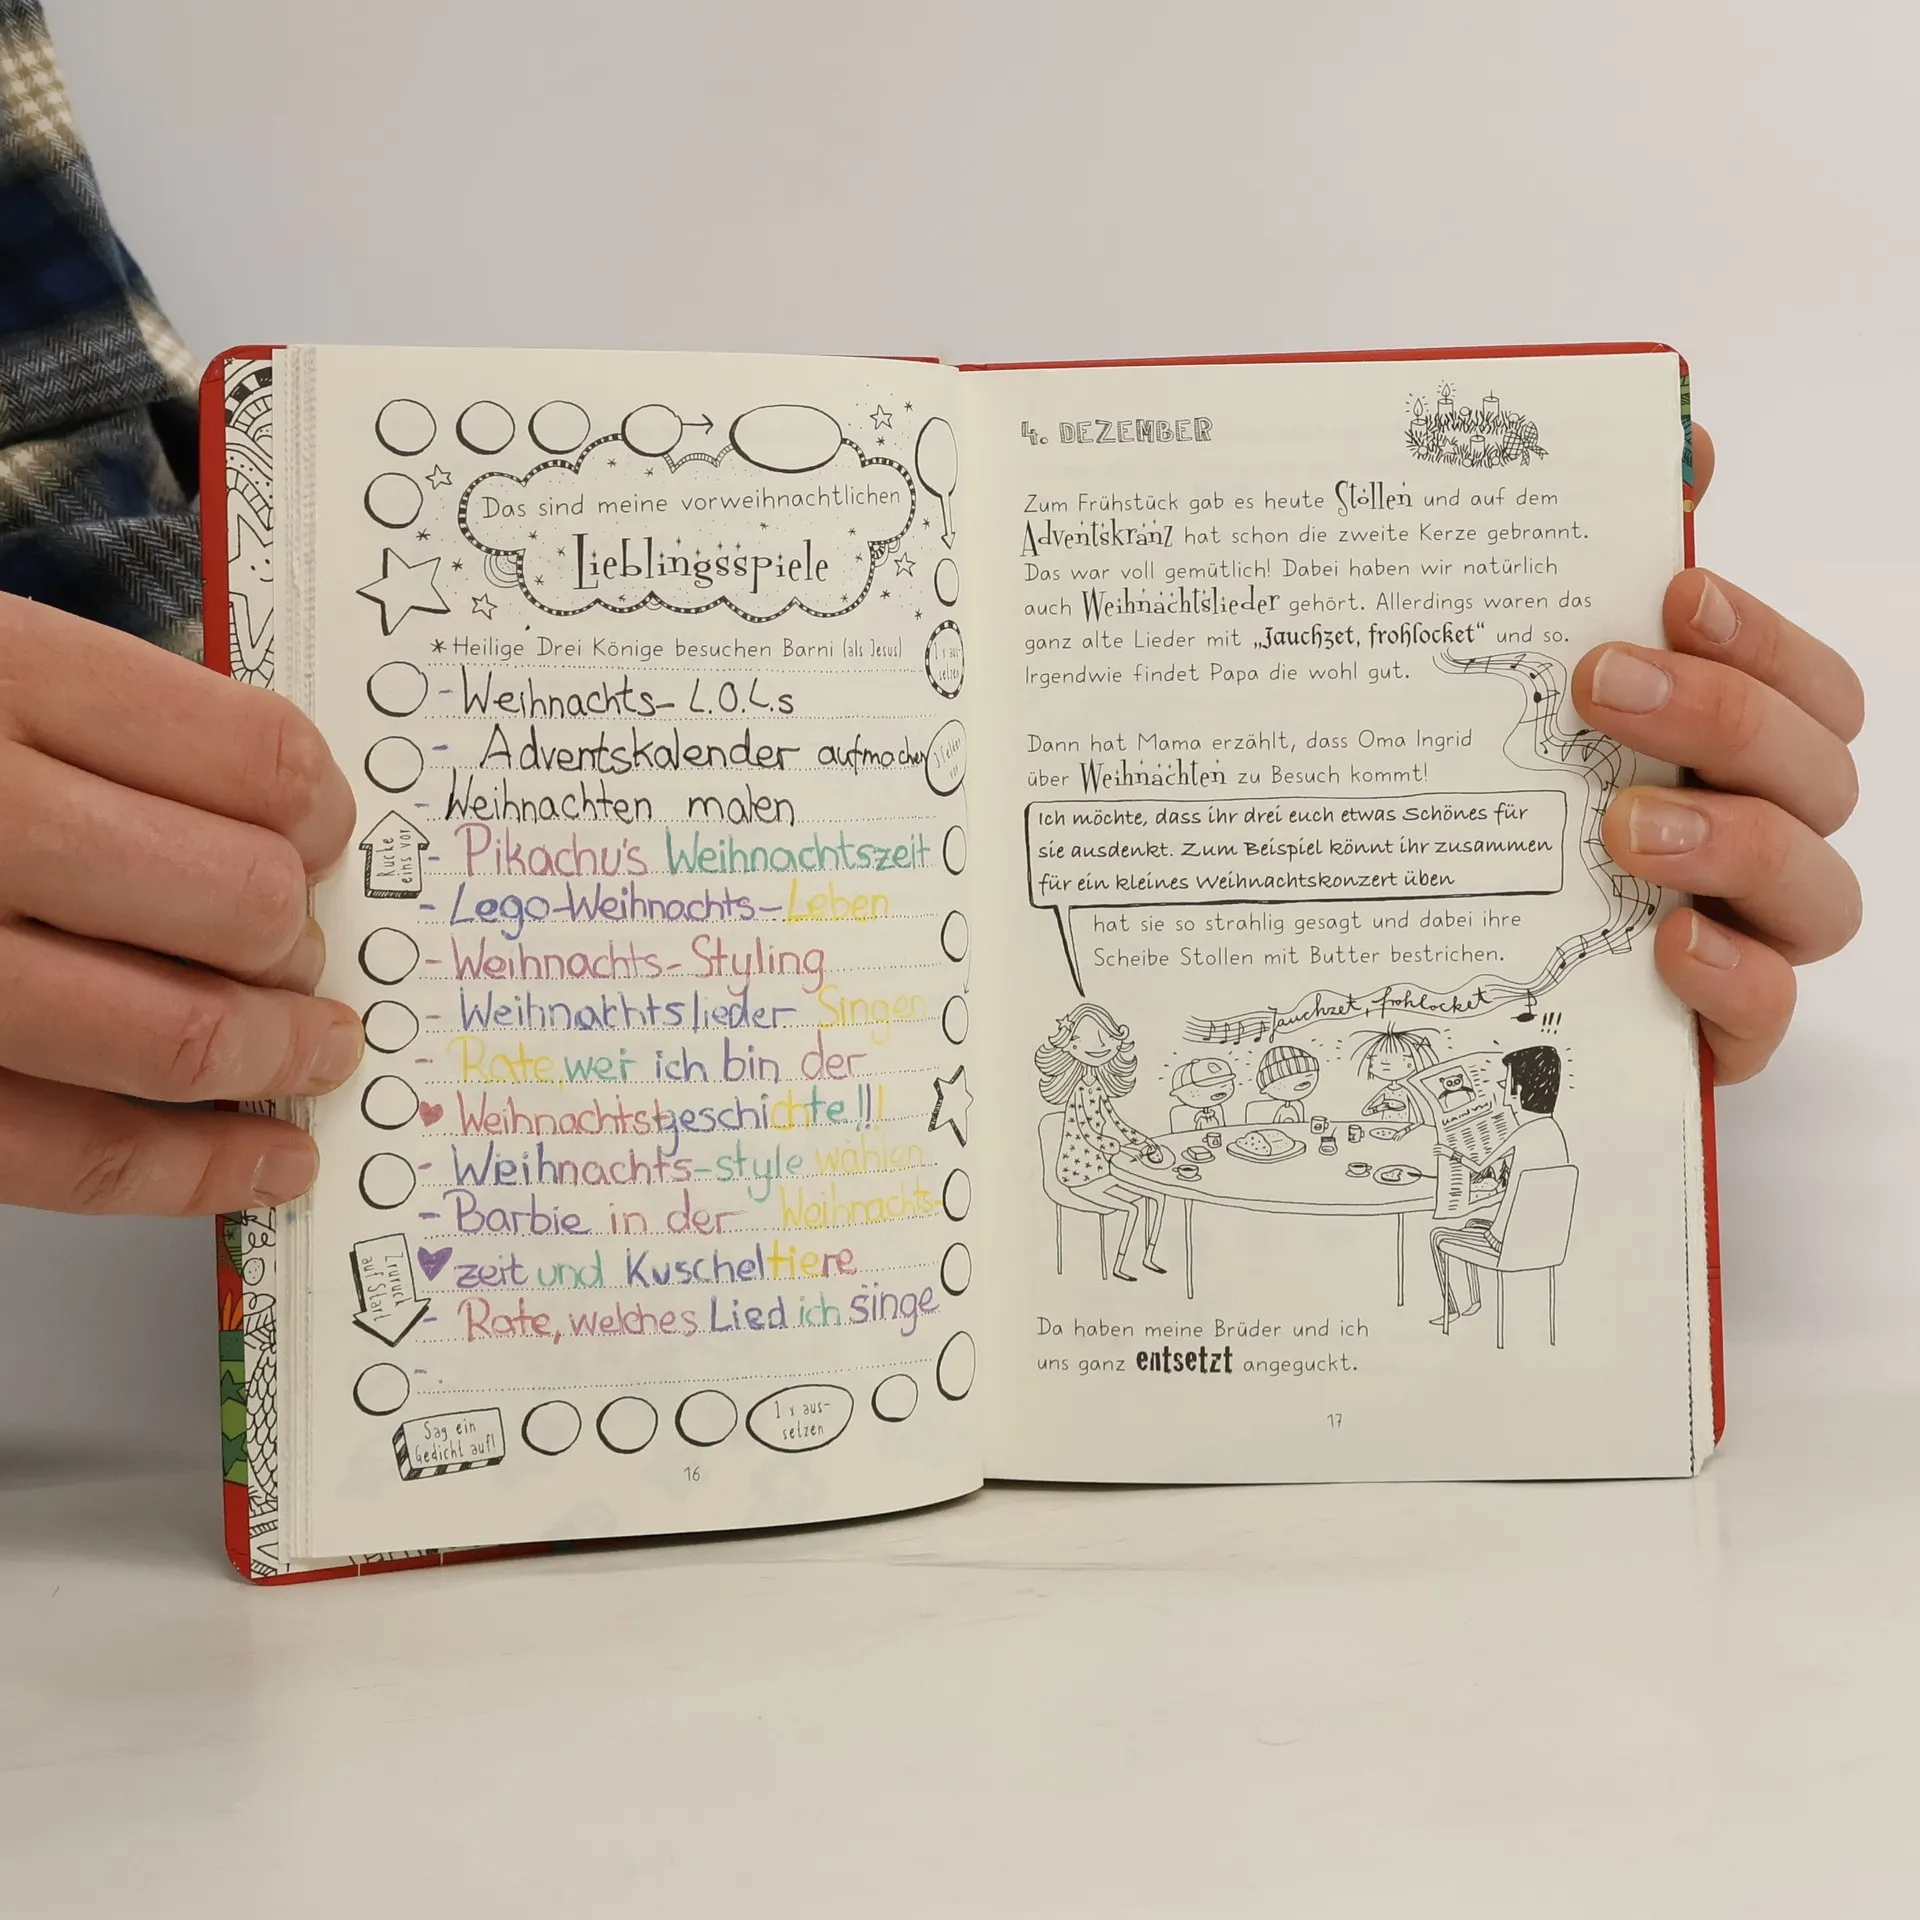 Das sind meine vorweihnachtlichen
Lieblingsspiele
* Heilige Drei Könige besuchen Barni (als Jesus)
- Weihnachts- L.O.L.s
- Adventskalender aufmachen
- Weihnachten malen
- Pikachu's Weihnachtszeit
- Lego-Weihnachts-Leben
- Weihnachts-Styling
- Weihnachtslieder Singen
- Rate, wer ich bin der
Weihnachtsgeschichte!!!
- Weihnachts-style wählen
- Barbie in der Weihnachts-
zeit und Kuscheltiere
- Rate, welches Lied ich singe
- .
1 x aus-
setzen
3 Felder
vor
Rücke
eins vor
Zurück
auf Start
Sag ein
Gedicht auf!
1 x aus-
setzen
16
4. DEZEMBER
Zum Frühstück gab es heute Stollen und auf dem
Adventskranz hat schon die zweite Kerze gebrannt.
Das war voll gemütlich! Dabei haben wir natürlich
auch Weihnachtslieder gehört. Allerdings waren das
ganz alte Lieder mit „Jauchzet, frohlocket“ und so.
Irgendwie findet Papa die wohl gut.
Dann hat Mama erzählt, dass Oma Ingrid
über Weihnachten zu Besuch kommt!
Ich möchte, dass ihr drei euch etwas Schönes für
sie ausdenkt. Zum Beispiel könnt ihr zusammen
für ein kleines Weihnachtskonzert üben
hat sie so strahlig gesagt und dabei ihre
Scheibe Stollen mit Butter bestrichen.
Jauchzet, frohlocket !!!
Da haben meine Brüder und ich
uns ganz entsetzt angeguckt.
17